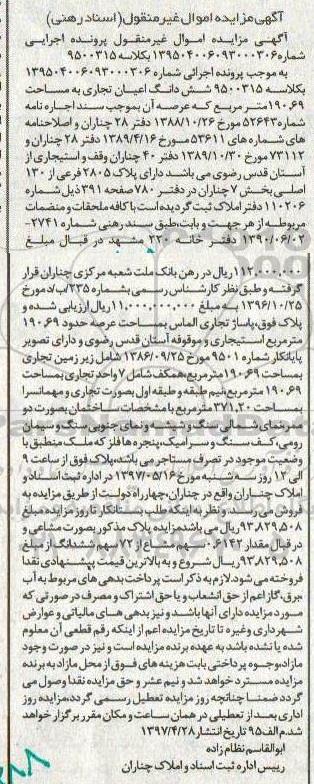 آگهی مزایده اموال غیر منقول (اسناد رهنی)
آگهی مزایده اموال غیرمنقول پرونده اجرایی
شماره ۱۳۹۵۰۴۰۰۶۰۹۳۰۰۰۳۰۶ بکلاسه ۹۵۰۰۳۱۵
به موجب پرونده اجرائی شماره ۱۳۹۵۰۴۰۰۶۰۹۳۰۰۰۳۰۶
بکلاسه ۹۵۰۰۳۱۵ شش دانگ اعیان تجاری به مساحت
۱۹۰.۶۹ متر مربع که عرصه آن بموجب سند اجاره نامه
شماره ۵۲۶۴۳ مورخ ۱۳۸۸/۱۰/۲۶ دفتر ۲۸ چناران و اصلاحنامه
های شماره های ۵۳۶۱۱ مورخ ۱۳۸۹/۴/۱۶ دفتر ۲۸ چناران و
۷۳۱۱۲ مورخ ۱۳۸۹/۱۰/۳۰ دفتر ۴۰ چناران وقف و استیجاری از
آستان قدس رضوی می باشد دارای پلاک ۲۸۰۵ فرعی از ۱۳۰
اصلی بخش ۷ چناران در دفتر ۷۸۰ صفحه ۳۹۱ ذیل شماره
۱۱۰۲۰۶ دفتر املاک ثبت گردیده است با کافه ملحقات و منضمات
مربوطه از هر جهت و بابت، طبق سند رهنی شماره ۲۷۴۱-
۱۳۹۰/۰۶/۰۲ دفتر خانه ۲۲۰ مشهد در قبال مبلغ
۱۱۲,۰۰۰,۰۰۰ ریال در رهن بانک ملت شعبه مرکزی چناران قرار
گرفته و طبق نظر کارشناس رسمی بشماره ۲۳۵/ب/د مورخ
۱۳۹۶/۱۰/۲۵ به مبلغ ۱۱,۰۰۰,۰۰۰,۰۰۰ ریال ارزیابی شده و
پلاک فوق، پاساژ تجاری الماس بمساحت عرصه حدود ۱۹۰.۶۹
مترمربع استیجاری و موقوفه آستان قدس رضوی و دارای تصویر
پایانکار شماره ۹۵۰۱ مورخ ۱۳۸۶/۰۹/۲۵ شامل زیر زمین تجاری
بمساحت ۱۹۰.۶۹ مترمربع، همکف شامل ۷ واحد تجاری بمساحت
۱۹۰.۶۹ مترمربع، نیم طبقه و طبقه اول بصورت تجاری و مهمانسرا
بمساحت ۳۷۱.۲۰ مترمربع با مشخصات ساختمان بصورت دو
ممر، نمای شمالی سنگ و شیشه و نمای جنوبی سنگ و سیمان
رومی، کف سنگ و سرامیک، پنجره ها فلز که ملک منطبق با
وضعیت موجود در تصرف مستاجر می باشد، پلاک فوق از ساعت ۹
الی ۱۲ روز سه شنبه مورخ ۱۳۹۷/۰۵/۱۶ در اداره ثبت اسناد و
املاک چناران واقع در چناران، چهارراه دولت از طریق مزایده به
فروش می رسد. و نظر به اینکه طلب بستانکار تا روز مزایده مبلغ
۹۳,۸۲۹,۵۰۸ ریال می باشد مزایده پلاک مذکور بصورت مشاعی و
در قبال مقدار ۰.۶۱۴۲ سهم مشاع از ۷۲ سهم ششدانگ از مبلغ
۹۳,۸۲۹,۵۰۸ ریال شروع و به بالاترین قیمت پیشنهادی نقدا
فروخته می شود. لازم به ذکر است پرداخت بدهی های مربوط به آب
،برق، گاز اعم از حق انشعاب و یا حق اشتراک و مصرف در صورتی که
مورد مزایده دارای آنها باشد و نیز بدهی های مالیاتی و عوارض
شهرداری و غیره تا تاریخ مزایده اعم از اینکه رقم قطعی آن معلوم
شده یا نشده باشد به عهده برنده مزایده است و نیز در صورت وجود
مازاد، وجوه پرداختی بابت هزینه های فوق از محل مازاد به برنده
مزایده مسترد خواهد شد و نیم عشر و حق مزایده نقدا وصول می
گردد ضمنا چنانچه روز مزایده تعطیل رسمی گردد، مزایده روز
اداری بعد از تعطیلی در همان ساعت و مکان مقرر برگزار خواهد
شد. م الف ۹۵ تاریخ انتشار ۱۳۹۷/۴/۲۸
ابوالقاسم نظام زاده
رییس اداره ثبت اسناد و املاک چناران